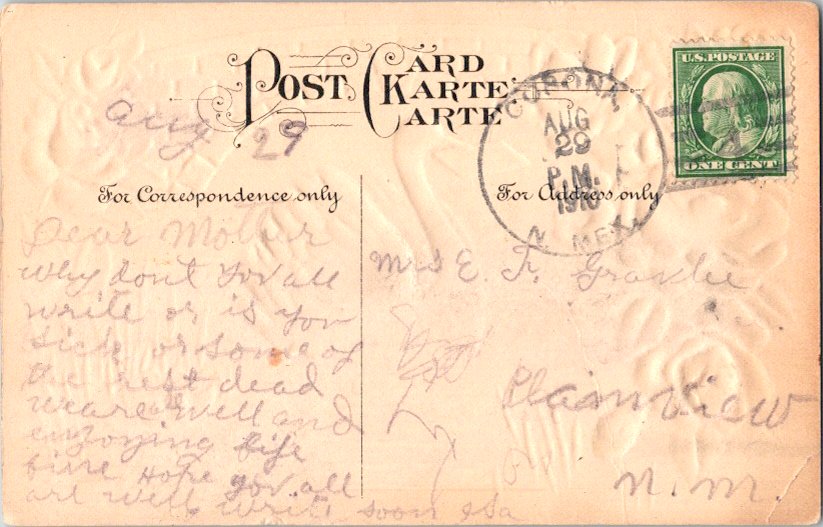 POST CARD
KARTE
CARTE
CORONA,
AUG
29
P.M.
1910
N. MEX.
U.S. POSTAGE
ONE CENT
aug 29
For Correspondence only
For Address only
Dear Mother
why dont you all
write or is you
sick or some of
the rest dead
we are all well and
enjoying life
fine Hope you all
are well write soon
Mrs E. F.
Plainview
N. M.